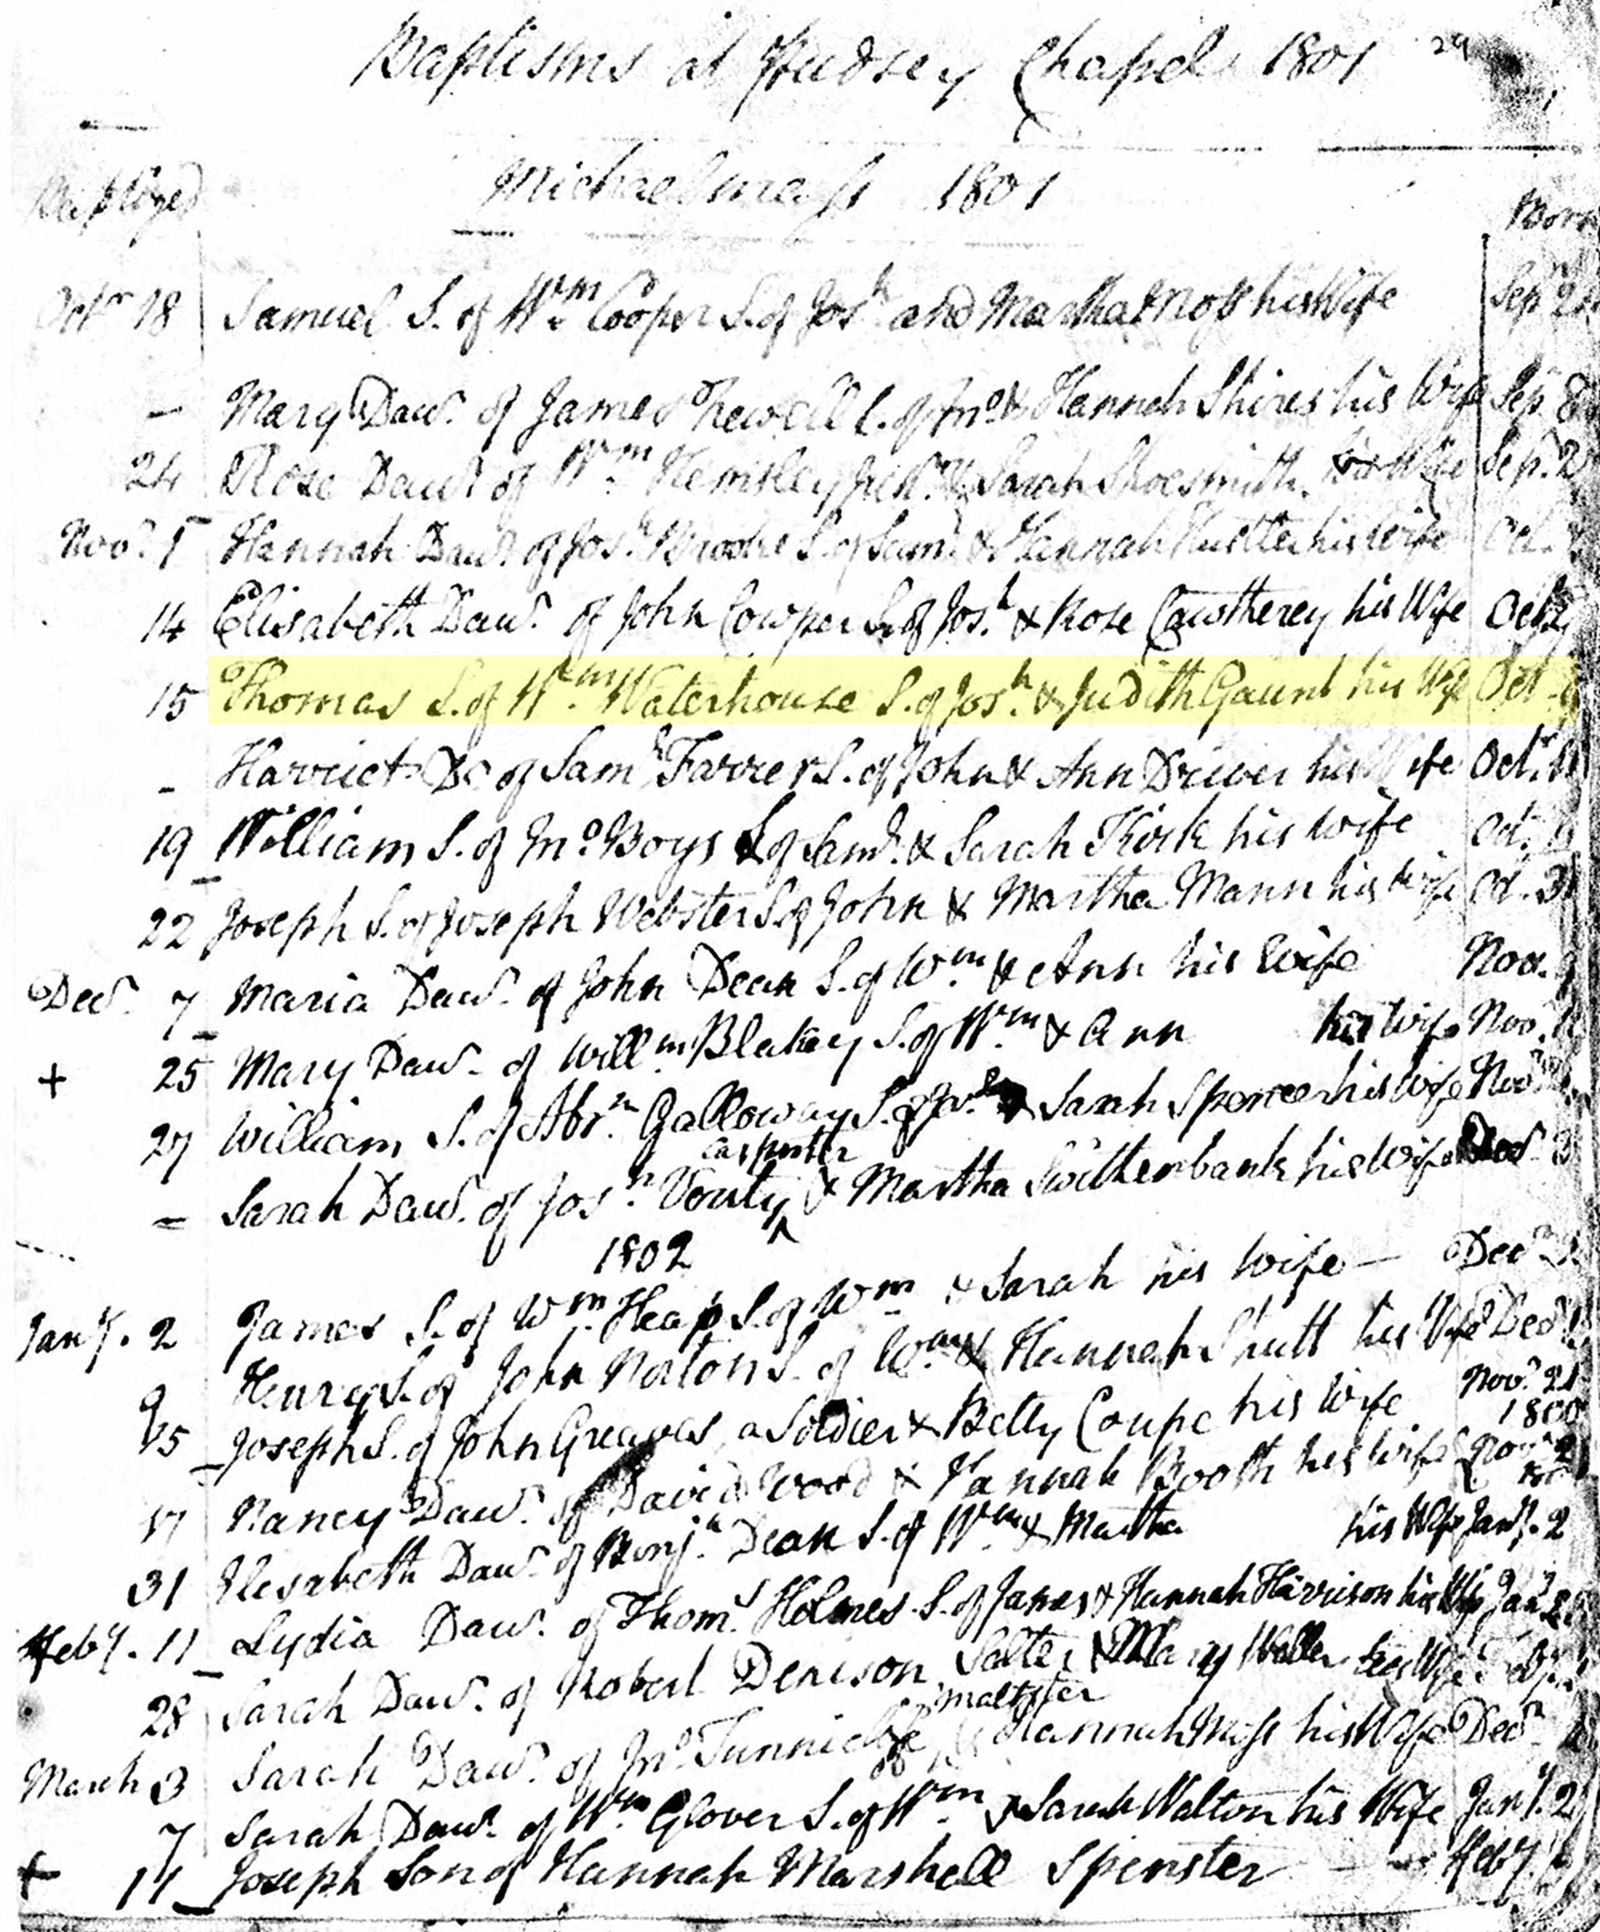 Baptisms at Pudsey Chapel 1801 29
Michaelmass 1801
Baptized Born
Octr 18 Samuel S. of Wm. Cooper S. of Josh. and Martha Moss his Wife Sepr
- Mary Dawr. of James Newell S. of Jno. & Hannah Shires his Wife Sep. 8
24 Rose Dawr. of Wm. Hemsley & Sarah Shoesmith his Wife Sep. 2
Novr. 1 Hannah Dawr. of Josh. Brooke S. of Saml. & Hannah his Wife Oct.
14 Elisabeth Dawr. of John Cowper S. of Josh. & Rose Cawtherey his Wife Oct
15 Thomas S. of Wm. Waterhouse S. of Josh. & Judith Gaunt his Wife Oct
- Harriet Do of Saml. Farrer S. of John & Ann Driver his Wife Oct. 11
19 William S. of Jno. Boys S. of Saml. & Sarah Kirk his wife Oct.
22 Joseph S. of Joseph Webster S. of John & Martha Mann his wife Oct. 31
Decr. 7 Maria Dawr. of John Dean S. of Wm. & Ann his Wife Nov.
+ 25 Mary Dawr. of Willm. Blakey S. of Wm. & Ann his wife Nov.
27 William S. of Abrm. Galloway S. of & Sarah Spence his wife Novr
carpenter
- Sarah Dawr. of Josh. Vouty ^ & Martha Swithenbank his Wife
1802
Jany. 2 James S. of Wm. Heap S. of Wm & Sarah his Wife — Decr
9 Henry S. of John Norton S. of Wm. & Hannah Shutt his Wife Decr
15 Joseph S. of John Greaves, a Soldier & Betty Coupe his Wife Novr. 21
1800
17 Nancy Dawr. of David Wood & Hannah Booth his wife Novr 2
31 Elesabeth Dawr. of Benjn. Dean S. of Wm. & Martha his Wife Jany. 2
Feby. 11 Lydia Dawr. of Thoms. Holmes S. of James & Hannah Harrison his Wife Jany
28 Sarah Dawr. of Robert Denison Salter & Mary his Wife
maltster
March 3 Sarah Dawr. of Jno. Tunnicliffe & Hannah Moss his Wife Decr
7 Sarah Dawr. of Wm Glover S. of Wm. & Sarah Walton his Wife Jany. 2
+ 14 Joseph Son of Hannah Marshell Spinster — Feby.